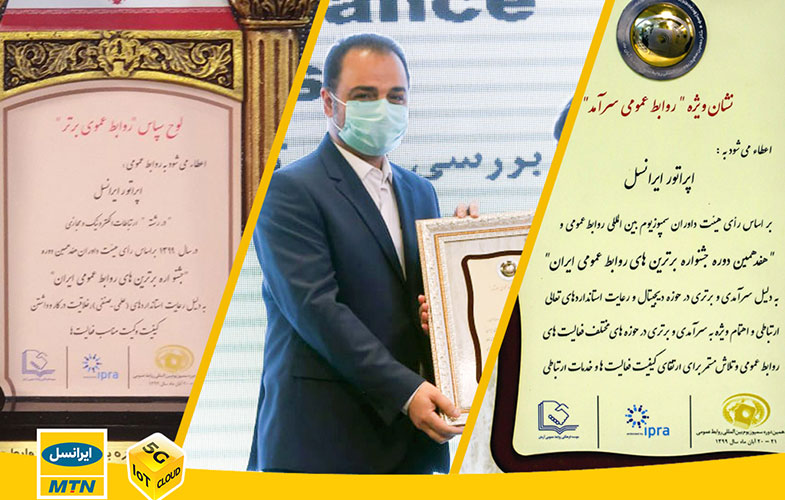 نشان ویژه " روابط عمومی سرآمد"
اعطاء می شود به :
اپراتور ایرانسل
بر اساس رأی هیئت داوران سمپوزیوم بین المللی روابط عمومی و
"هفدهمین دوره جشنواره برترین های روابط عمومی ایران"
به دلیل سرآمدی و برتری در حوزه دیجیتال و رعایت استانداردهای تعالی
ارتباطی و اهتمام ویژه به سرآمدی و برتری در حوزه های مختلف فعالیت های
روابط عمومی و تلاش مستمر برای ارتقای کیفیت فعالیت ها و خدمات ارتباطی
ipra
همین دوره سمپوزیوم بین المللی روابط عمومی
۲۰ - ۲۱ آبان ماه سال ۱۳۹۹
ance
s
بررسی
لوح سپاس "روابط عمومی برتر"
اعطاء می شود به روابط عمومی :
اپراتور ایرانسل
"در رشته " ارتباطات الکترونیک و مجازی
در سال ۱۳۹۹ بر اساس رأی هیئت داوران هفدهمین دوره
"جشنواره برترین های روابط عمومی ایران"
به دلیل رعایت استانداردهای (علمی-صنفی)، خلاقیت در کار و داشتن
کیفیت و کمیت مناسب فعالیت ها
ipra
ایرانسل
MTN
5G
IoT
CLOUD